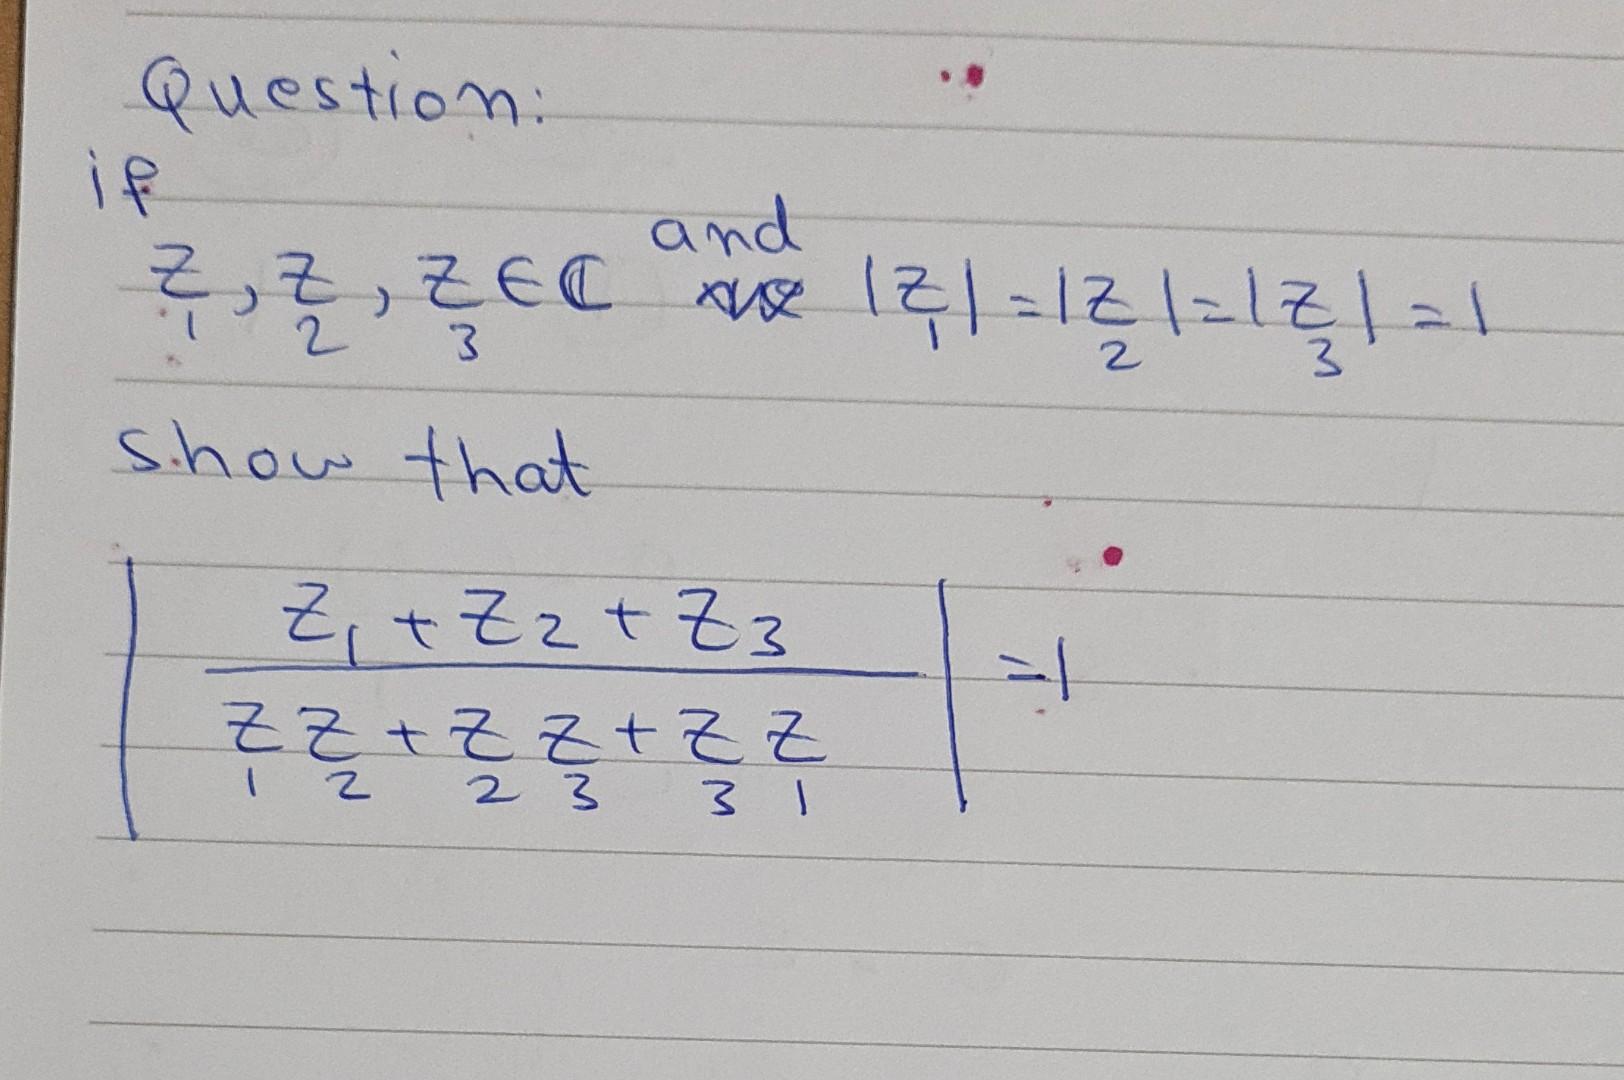 Question:
if
z₁, z₂, z₃ ∈ ℂ and |z₁| = |z₂| = |z₃| = 1
show that
| (z₁ + z₂ + z₃) / (z₁ z₂ + z₂ z₃ + z₃ z₁) | = 1